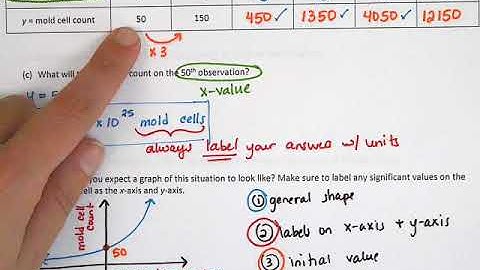 y = mold cell count 50 150 450 ✓ 1350 ✓ 4050 ✓ 12150
x 3
(c) What will count on the 50th observation?
x-value
x 10^25 mold cells
always label your answer w/ units
you expect a graph of this situation to look like? Make sure to label any significant values on the
ell as the x-axis and y-axis.
① general shape
mold cell
count
② labels on x-axis + y-axis
50
③ initial value